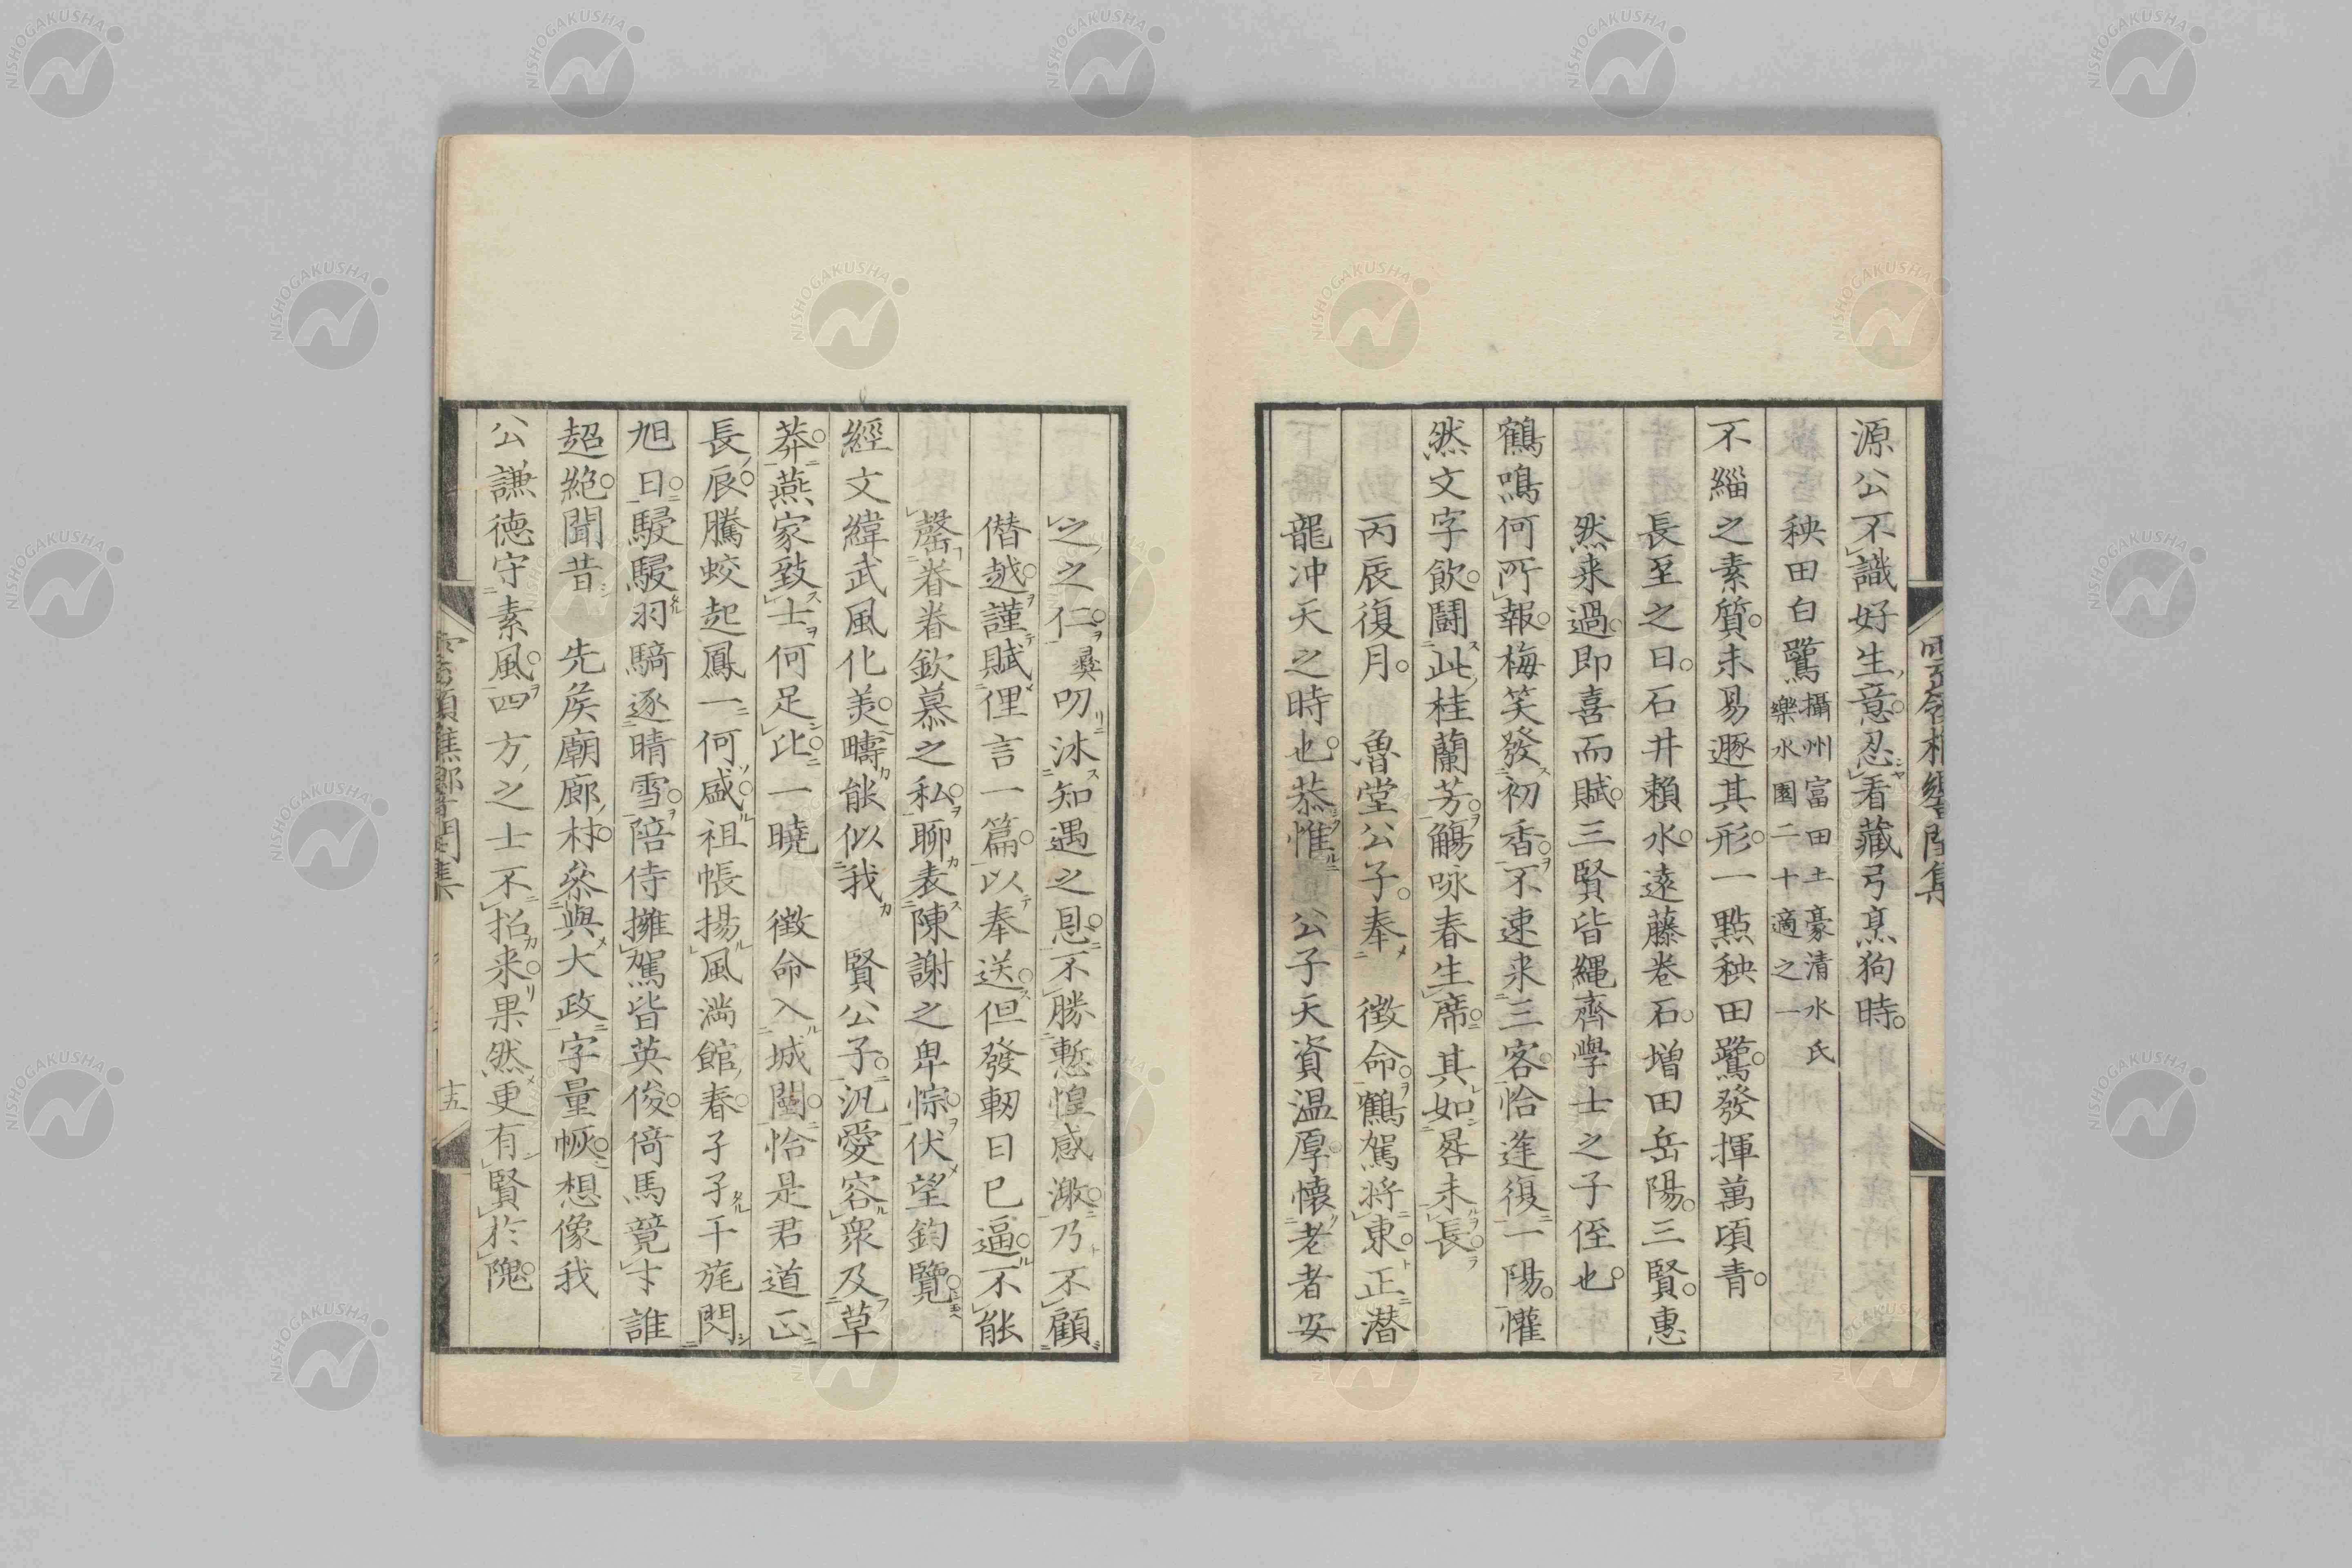 源公不識好生意忍看藏弓烹狗時
秧田白鷺攝州富田土豪清水氏
樂水園二十適之一
不緇之素質未易遯其形一點秧田鷺發揮萬頃青
長至之日石井賴水遠藤卷石增田岳陽三賢惠
然来過即喜而賦三賢皆繩齊學士之子侄也
鶴鳴何所報梅笑發初香不速来三客恰逢復一陽懽
然文字飲鬪此桂蘭芳觴咏春生席其如晷未長
丙辰復月 魯堂公子奉 徴命鶴駕將東正潜
龍冲天之時也恭惟 公子天資温厚懷老者安
之之仁彛叨沐知遇之恩不勝慙惶感激乃不顧
僭越謹賦俚言一篇以奉送但發軔日已逼不能
罄眷眷欽慕之私聊表陳謝之卑悰伏望鈞覽
經文緯武風化美疇能似我 賢公子汎愛容衆及草
莽燕家致士何足比一曉 徴命入城闉恰是君道正
長辰騰蛟起鳳一何盛祖帳揚風満館春孑孑干旄閃
旭日駸駸羽騎逐晴雪陪侍擁駕皆英俊倚馬竟才誰
超絶聞昔 先侯廟廊材參與大政字量恢想像我
公謙德守素風四方之士不招来果然更有賢於隗
十五